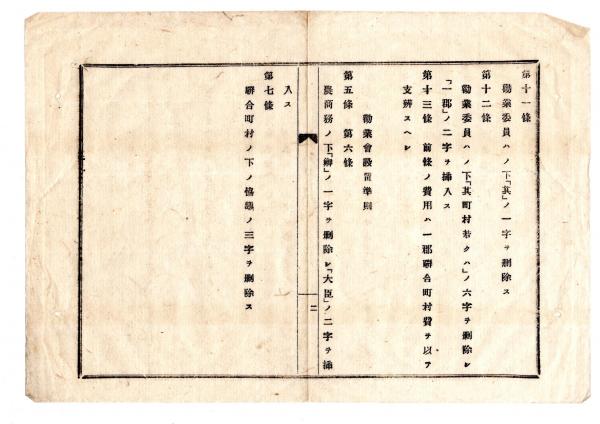 第十一條
勸業委員ハノ下「其」ノ一字ヲ刪除ス
第十二條
勸業委員ハノ下「其町村若クハ」ノ六字ヲ刪除シ
「一郡」ノ二字ヲ挿入ス
第十三條 前條ノ費用ハ一郡聯合町村費ヲ以テ
支辨スヘシ
勸業會設置準則
第五條 第六條
農商務ノ下「卿」ノ一字ヲ刪除シ「大臣」ノ二字ヲ挿
二
入ス
第七條
聯合町村ノ下ノ協議ノ三字ヲ刪除ス